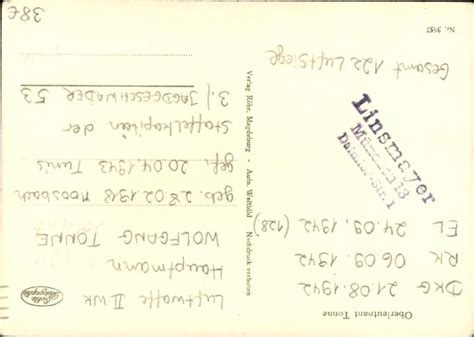 Luftwaffe II WK
Hauptmann
WOLFGANG TONNE
geb. 28.02.1918 Moosbach
gef. 20.04.1943 Tunis
Staffelkapitän der
3.) JAGDGESCHWADER 53
38€
Verlag Röhr, Magdeburg - Aufn. Weltbild Nachdruck verboten
Oberleutnant Tonne
DKG 21.08.1942
RK 06.09.1942
EL 24.09.1942 (128)
Linsmayer
München 13
Gesamt 122 Luftsiege
Nr. 3557